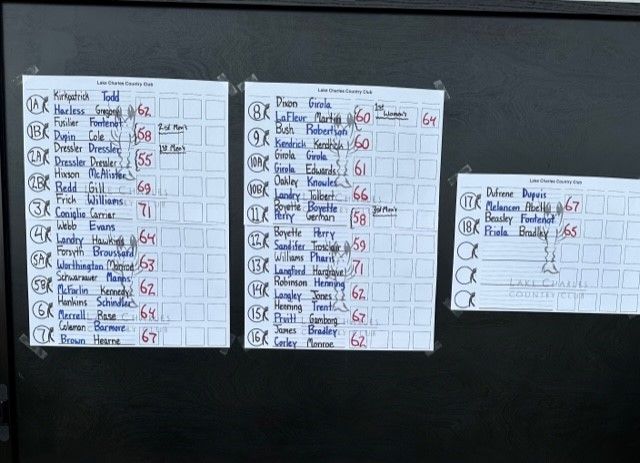 Lake Charles Country Club
1A Kirkpatrick Todd
Harless Gregory 62
1B Fusilier Fontenot
Dupin Cole 58 2nd Men's
2A Dressler Dressler
Dressler Dressler 55 1st Men's
2B Hixson McAlister
Redd Gill 69
3 Frick Williams
Coniglio Carrier 71
4 Webb Evans
Landry Hawkins 64
5A Forsyth Broussard
Worthington Monroe 63
5B Schwarzauer Manns
McFarlin Kennedy 62
6 Hankins Schindler
Merrell Rase 64
7 Coleman Barmore
Brown Hearne 67
Lake Charles Country Club
8 Dixon Girola
LaFleur Martin 60 1st Women's 64
9 Bush Robertson
Kendrick Kendrick 60
10A Girola Girola
Girola Edwards 61
10B Oakley Knowles
Landry Tolbert 66
11 Boyette Boyette
Perry German 58 3rd Men's
12 Boyette Perry
Sandifer Trosclair 59
13 Williams Pharis
Langford Hargrave 71
14 Robinson Henning
Langley Jones 62
15 Henning Trent
Pruitt Gamborg 62
16 James Bradley
Corley Monroe 62
Lake Charles Country Club
17 Dufrene Dupuis
Melancon Abell 67
18 Beasley Fontenot
Priola Bradley 65
LAKE CHARLES
COUNTRY CLUB